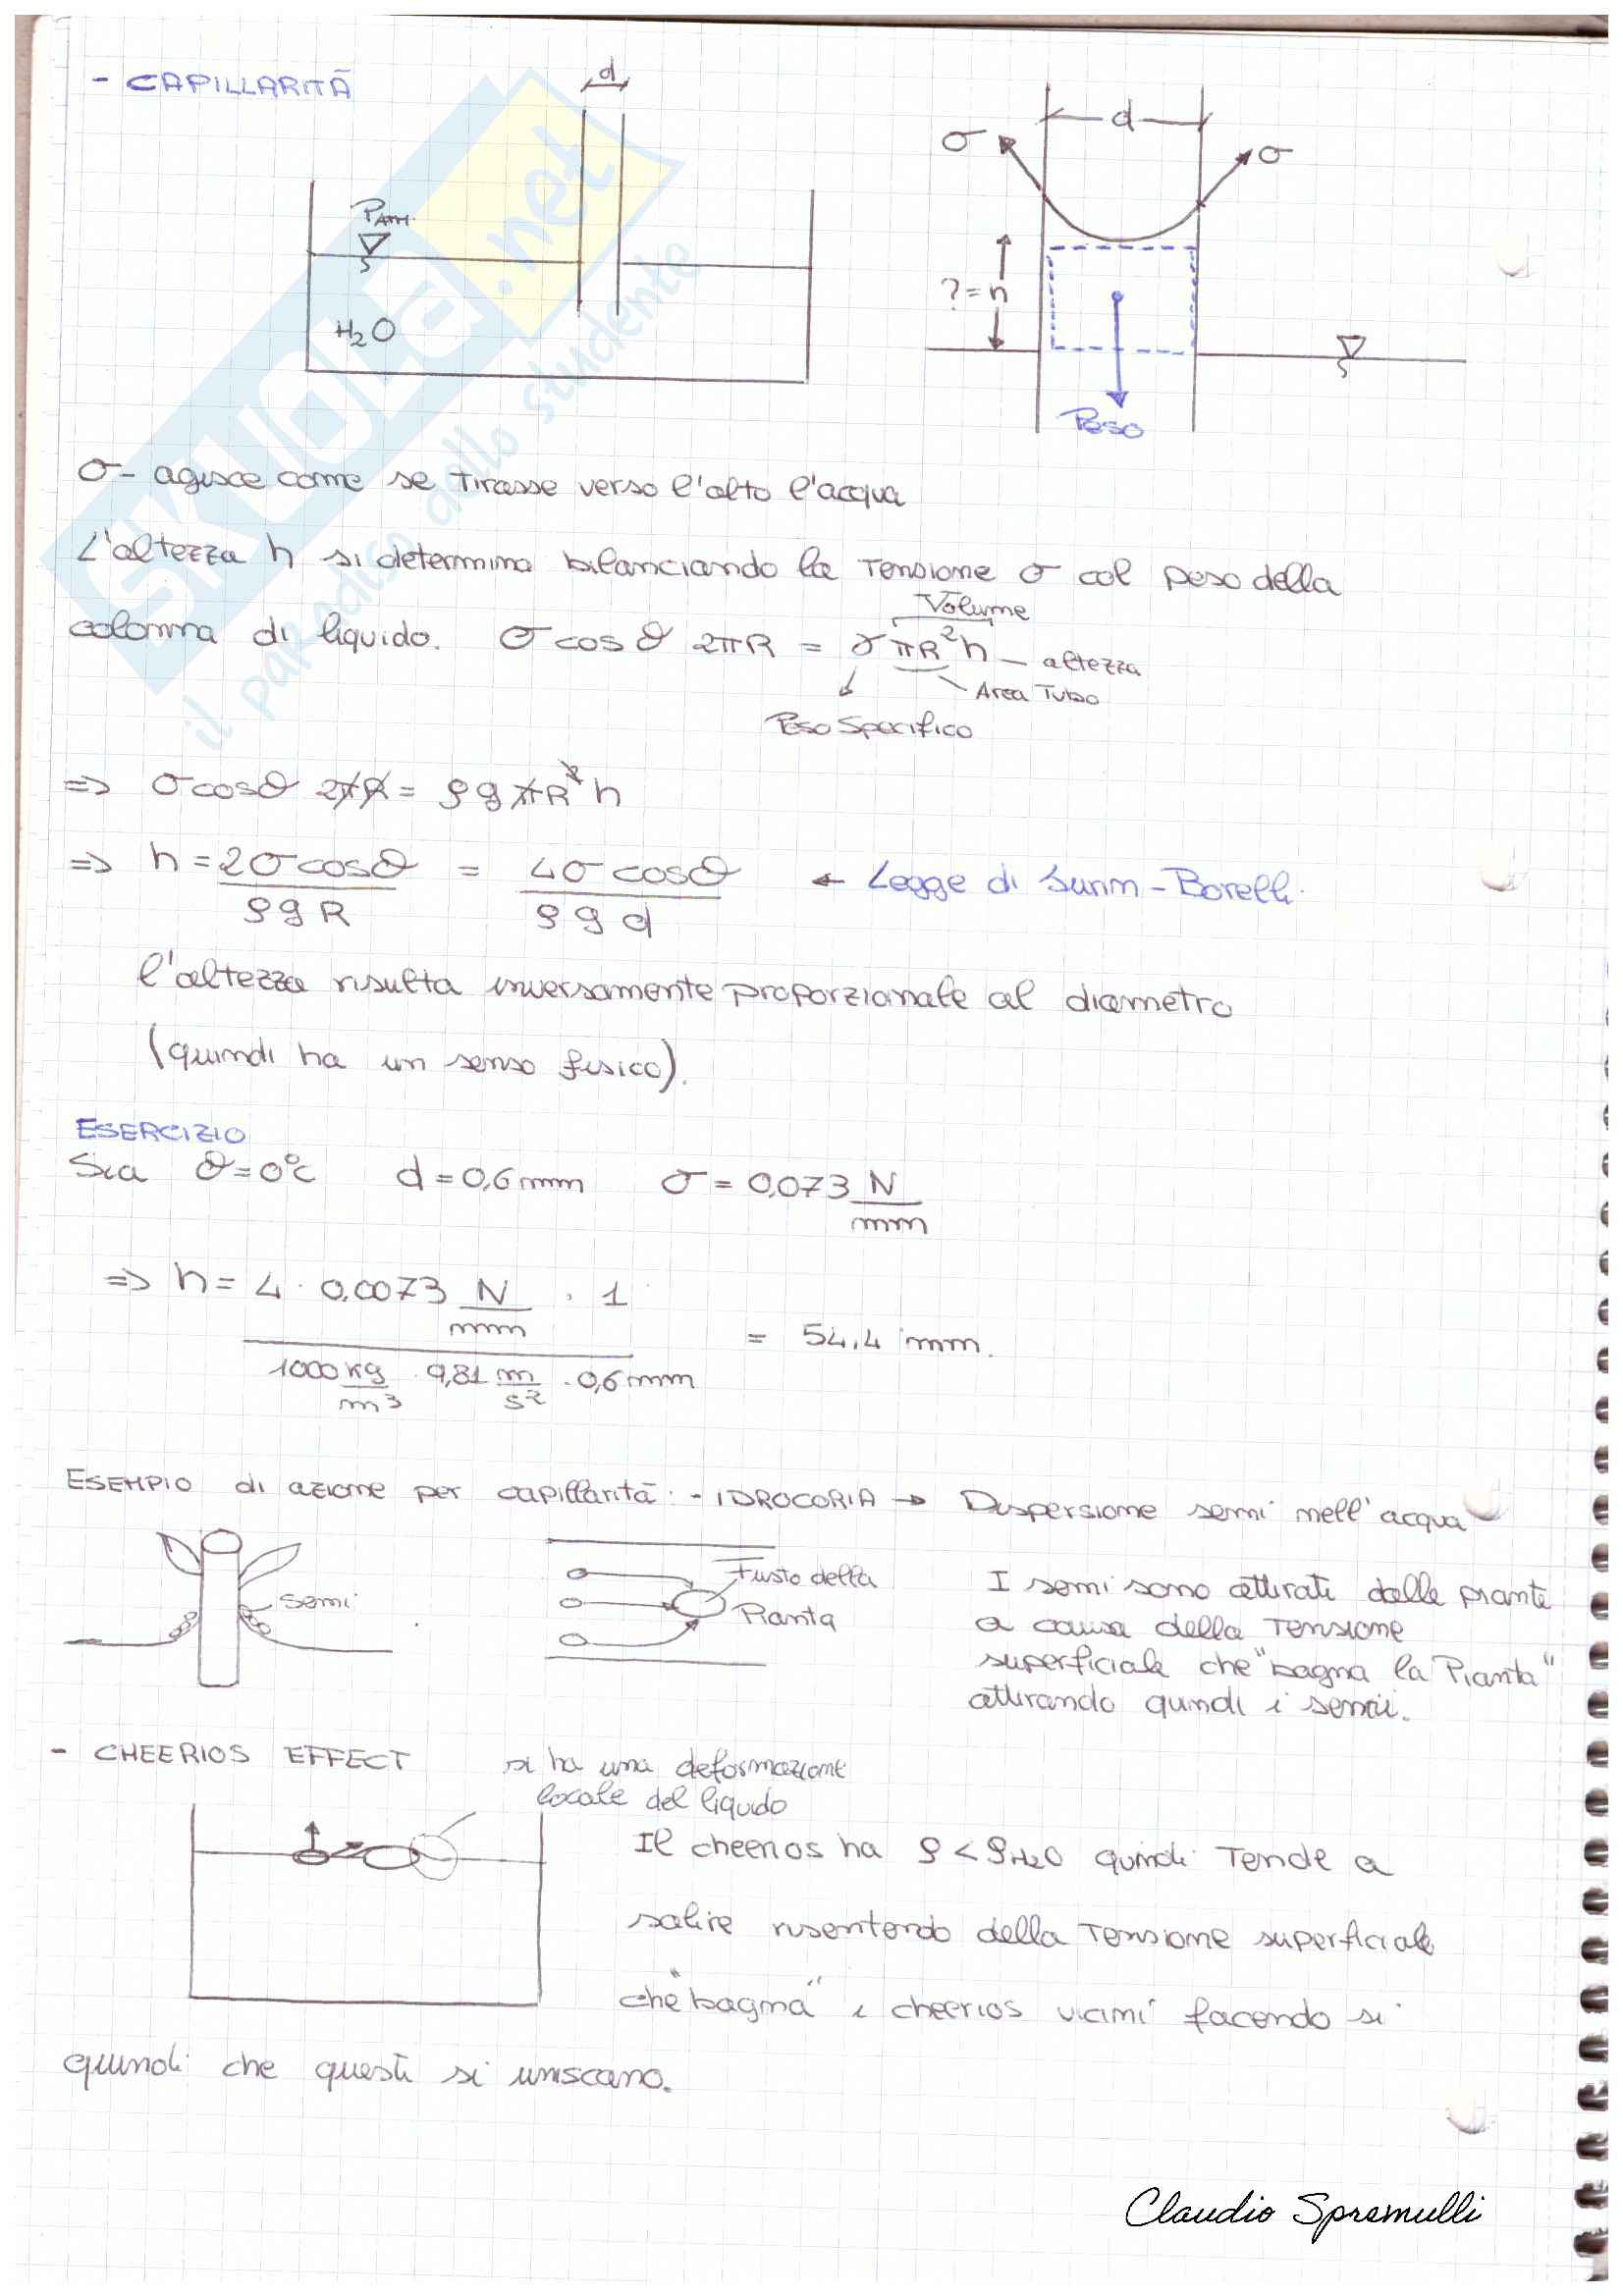 - CAPILLARITÀ
d
PATM.
H₂O
σ
d
σ
? = h
Peso
σ - agisce come se tirasse verso l'alto l'acqua
L'altezza h si determina bilanciando la tensione σ col peso della
Volume
colonna di liquido. σ cos θ 2πR = γ πR² h - altezza
Area Tubo
Peso Specifico
=> σ cos θ 2πR = ρ g πR² h
=> h = 2σ cos θ / ρ g R = 4σ cos θ / ρ g d ← Legge di Jurin - Borelli.
l'altezza risulta inversamente proporzionale al diametro
(quindi ha un senso fisico).
ESERCIZIO
Sia θ = 0°C d = 0,6 mm σ = 0,073 N/mm
=> h = 4 · 0,0073 N/mm · 1 / 1000 kg/m³ · 9,81 m/s² · 0,6 mm = 54,4 mm.
ESEMPIO di azione per capillarità: - IDROCORIA → Dispersione semi nell'acqua
semi
Fusto della
Pianta
I semi sono attirati dalle piante
a causa della tensione
superficiale che "bagna la Pianta"
attirando quindi i semi.
- CHEERIOS EFFECT
si ha una deformazione
locale del liquido
Il cheerios ha ρ < ρH₂O quindi tende a
salire risentendo della tensione superficiale
che "bagna" i cheerios vicini facendo sì
quindi che questi si uniscano.
Claudio Spremulli
SKUOLA.net
il paradiso dello studento